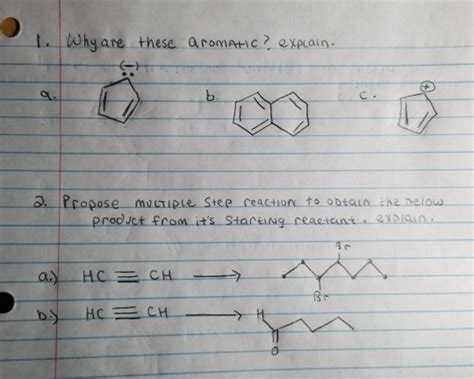 1. Why are these aromatic? explain.
(-)
a. b. c. +
2. Propose multiple step reaction to obtain the below
product from it's starting reactant. explain.
Br
a.) HC ≡ CH →
Br
b.) HC ≡ CH → H
O